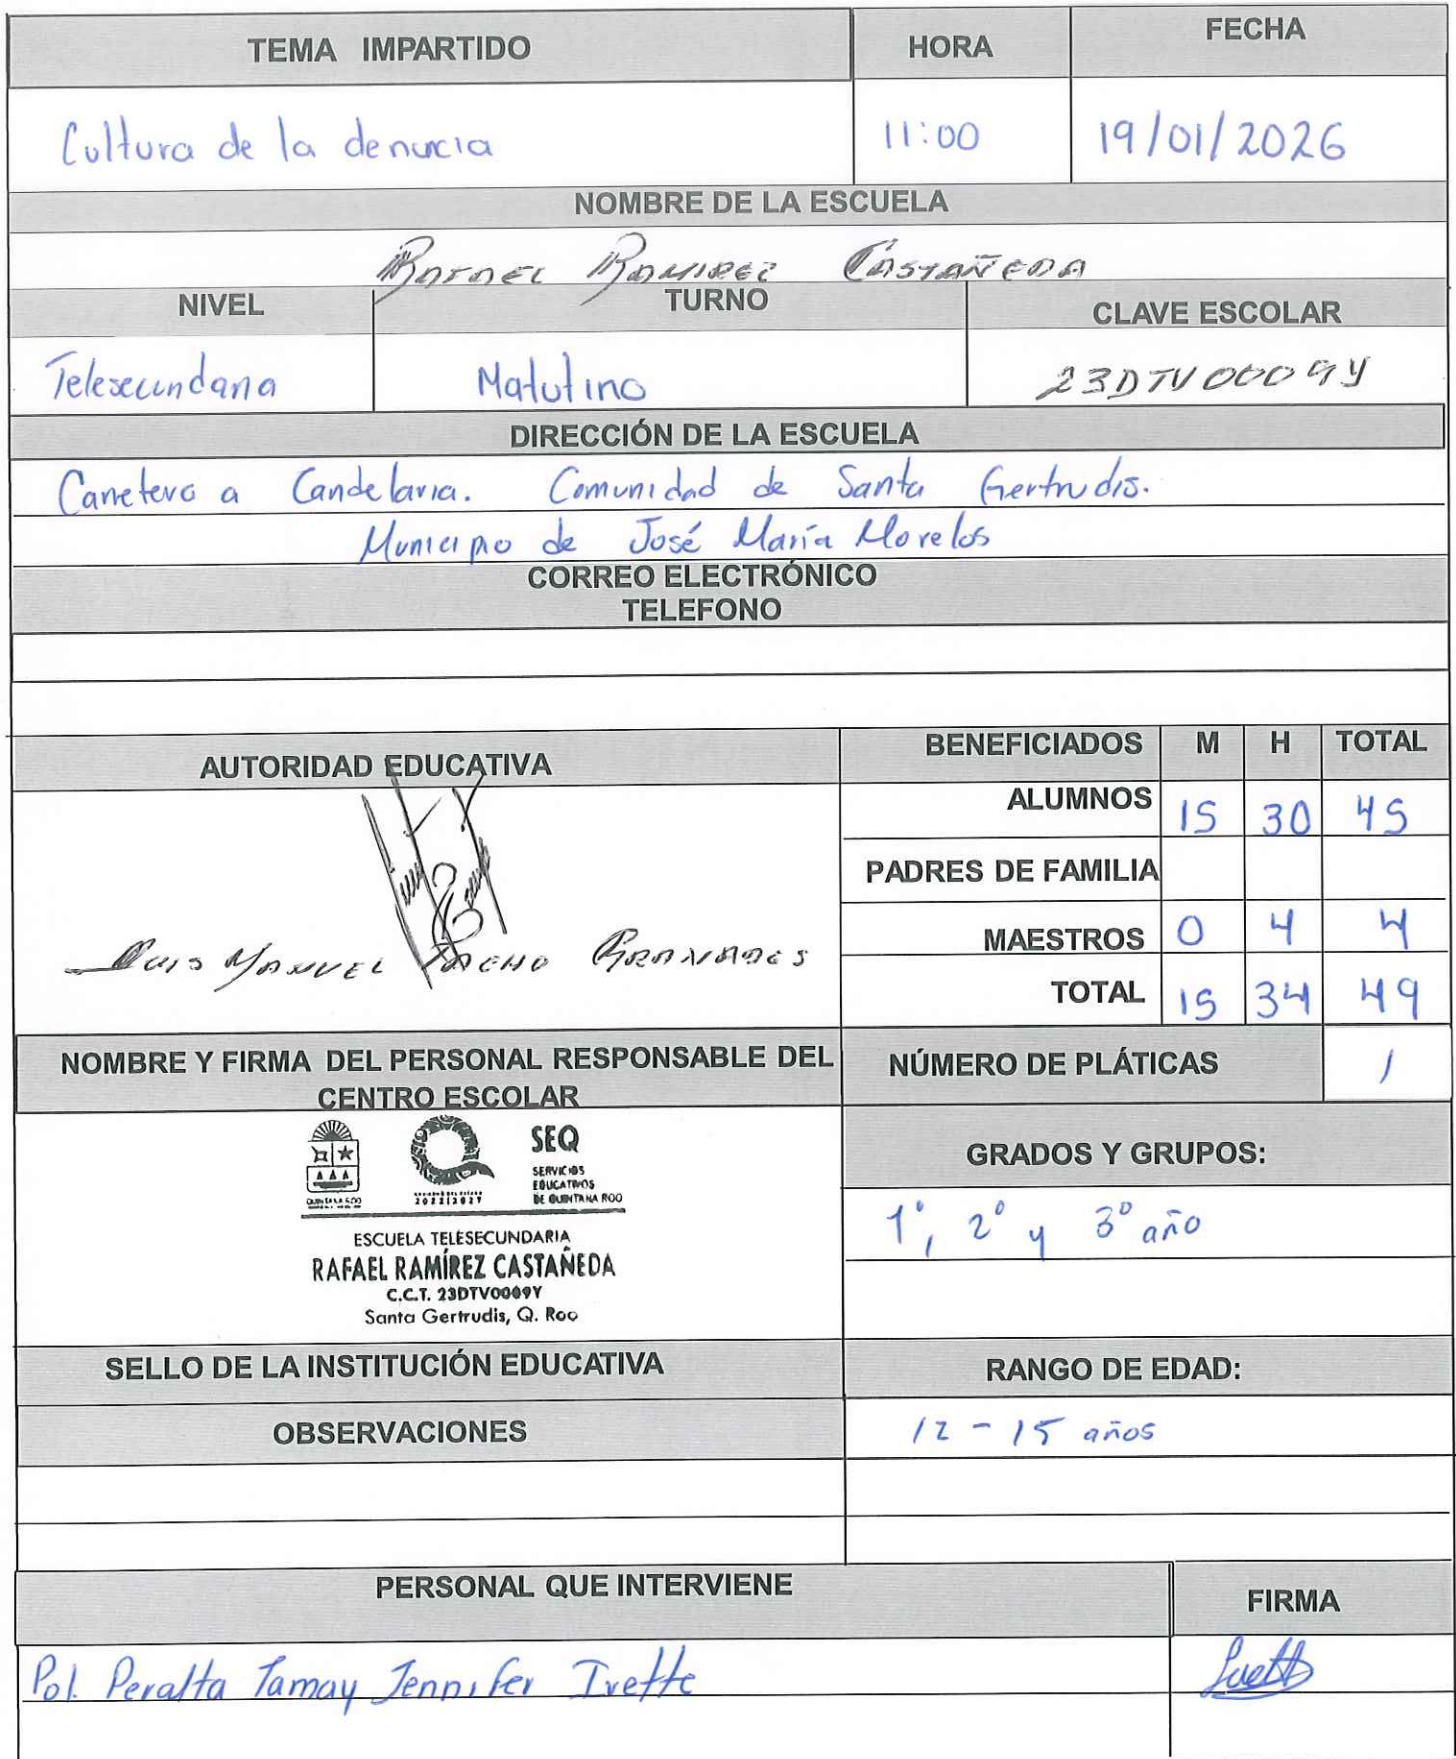 TEMA IMPARTIDO HORA FECHA
Cultura de la denuncia 11:00 19/01/2026
NOMBRE DE LA ESCUELA
RAFAEL RAMIREZ CASTAÑEDA
NIVEL TURNO CLAVE ESCOLAR
Telesecundaria Matutino 23DTV0009Y
DIRECCIÓN DE LA ESCUELA
Carretera a Candelaria. Comunidad de Santa Gertrudis.
Municipio de José María Morelos
CORREO ELECTRÓNICO
TELEFONO
AUTORIDAD EDUCATIVA BENEFICIADOS M H TOTAL
ALUMNOS 15 30 45
PADRES DE FAMILIA
MAESTROS 0 4 4
LUIS MANUEL
TOTAL 15 34 49
NOMBRE Y FIRMA DEL PERSONAL RESPONSABLE DEL
CENTRO ESCOLAR
NÚMERO DE PLÁTICAS 1
SEQ
SERVICIOS
EDUCATIVOS
DE QUINTANA ROO
QUINTANA ROO
2022|2027
ESCUELA TELESECUNDARIA
RAFAEL RAMÍREZ CASTAÑEDA
C.C.T. 23DTV0009Y
Santa Gertrudis, Q. Roo
GRADOS Y GRUPOS:
1°, 2° y 3° año
SELLO DE LA INSTITUCIÓN EDUCATIVA RANGO DE EDAD:
OBSERVACIONES 12 - 15 años
PERSONAL QUE INTERVIENE FIRMA
Pol. Peralta Tamay Jennifer Ivette